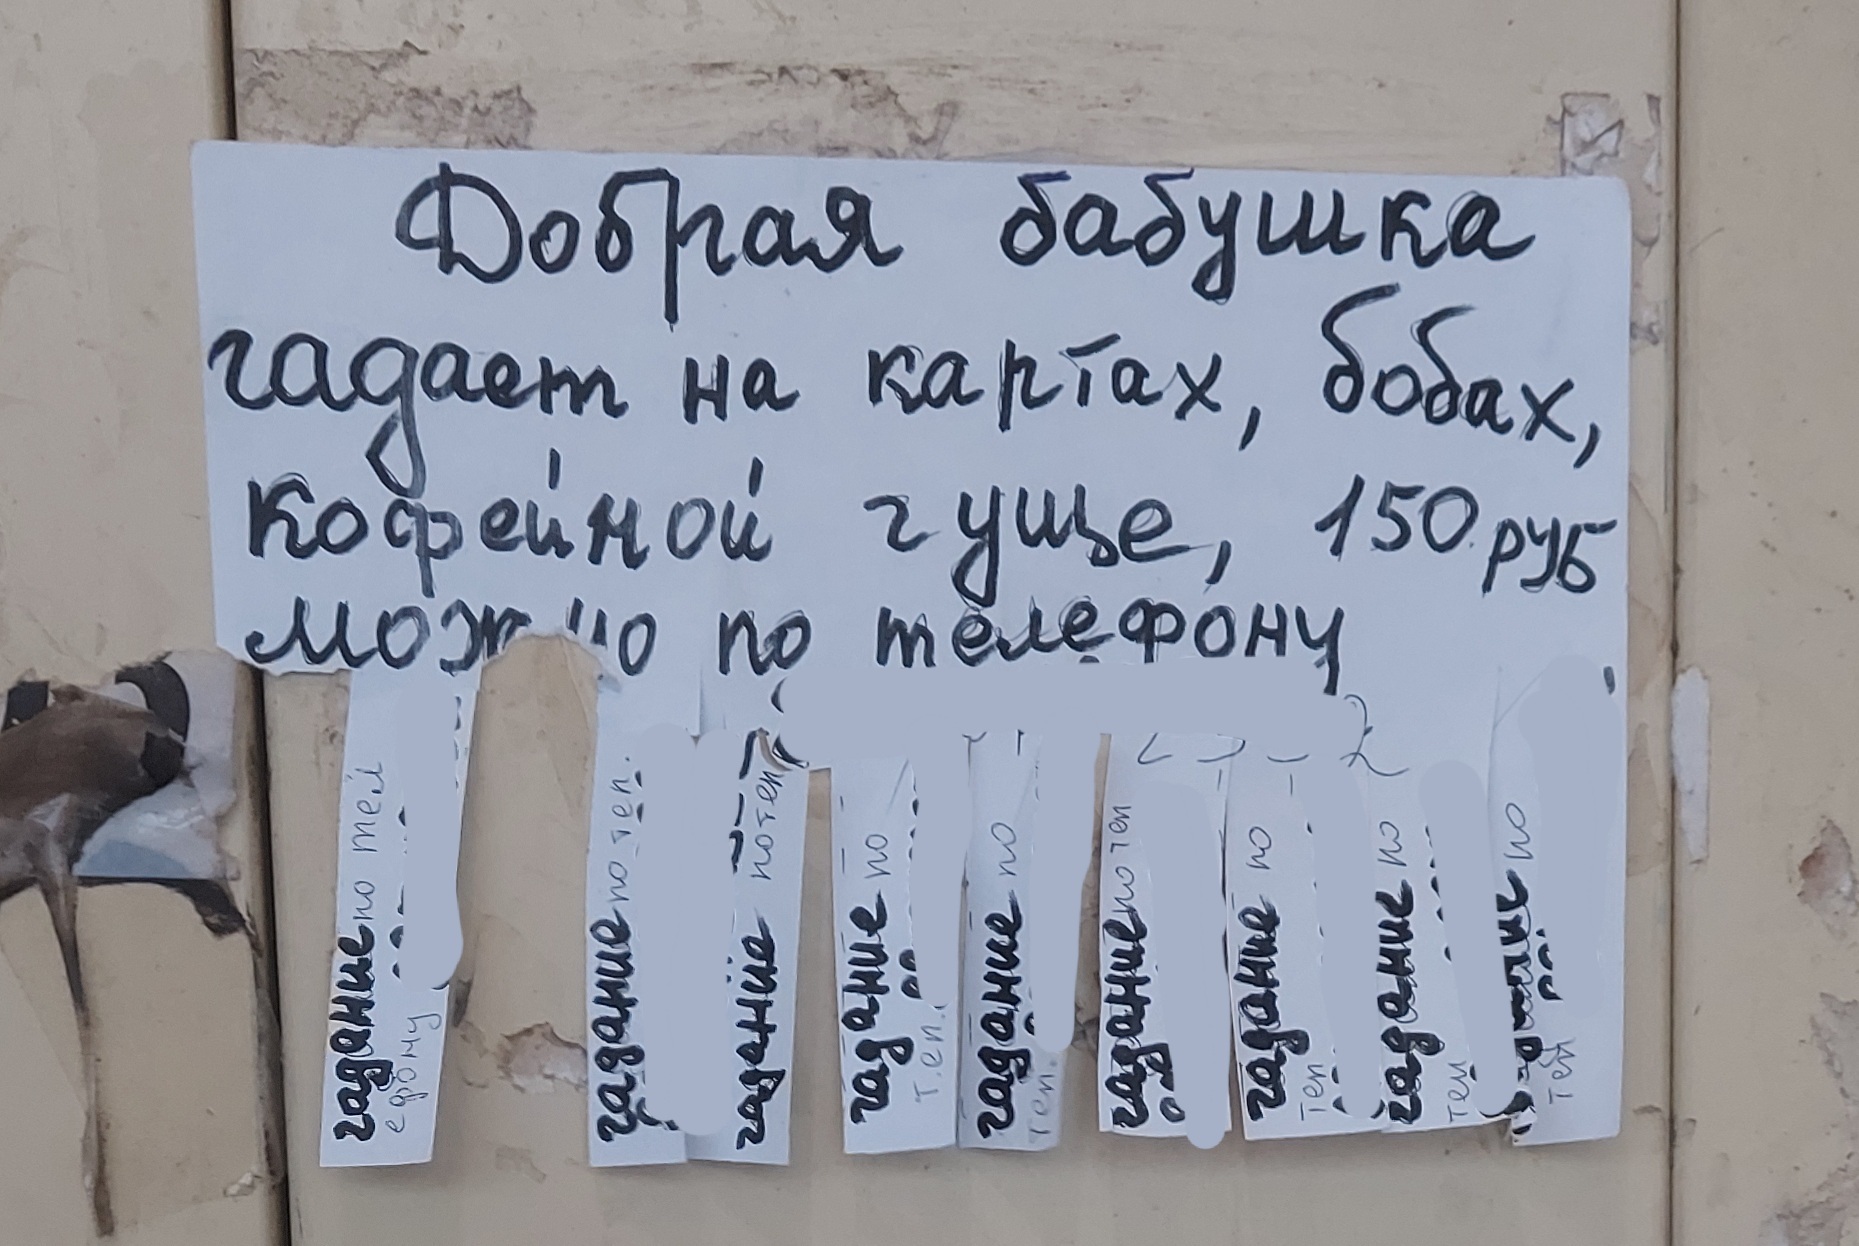 Добрая бабушка
гадает на картах, бобах,
кофейной гуще, 150 руб
можно по телефону
гадание по тел
ефону
гадание по тел.
гадание по тел
гадание по
тел.
гадание по
тел.
гадание по тел
гадание по
тел
гадание по
тел
гадание по
тел